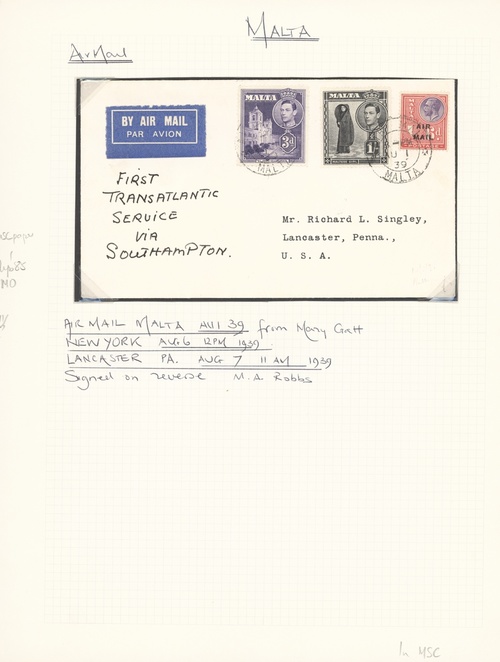 MALTA
Air Mail
BY AIR MAIL
PAR AVION
MALTA
3d
MALTA
1/-
AIR
MAIL
39
MALTA
MALTA
FIRST
TRANSATLANTIC
SERVICE
VIA
SOUTHAMPTON.
Mr. Richard L. Singley,
Lancaster, Penna.,
U. S. A.
AIR MAIL MALTA AU 1 39 from Mary Gatt
NEW YORK AUG 6 12PM 1939.
LANCASTER PA. AUG 7 11 AM 1939
Signed on reverse M.A. Robbs
In MSC